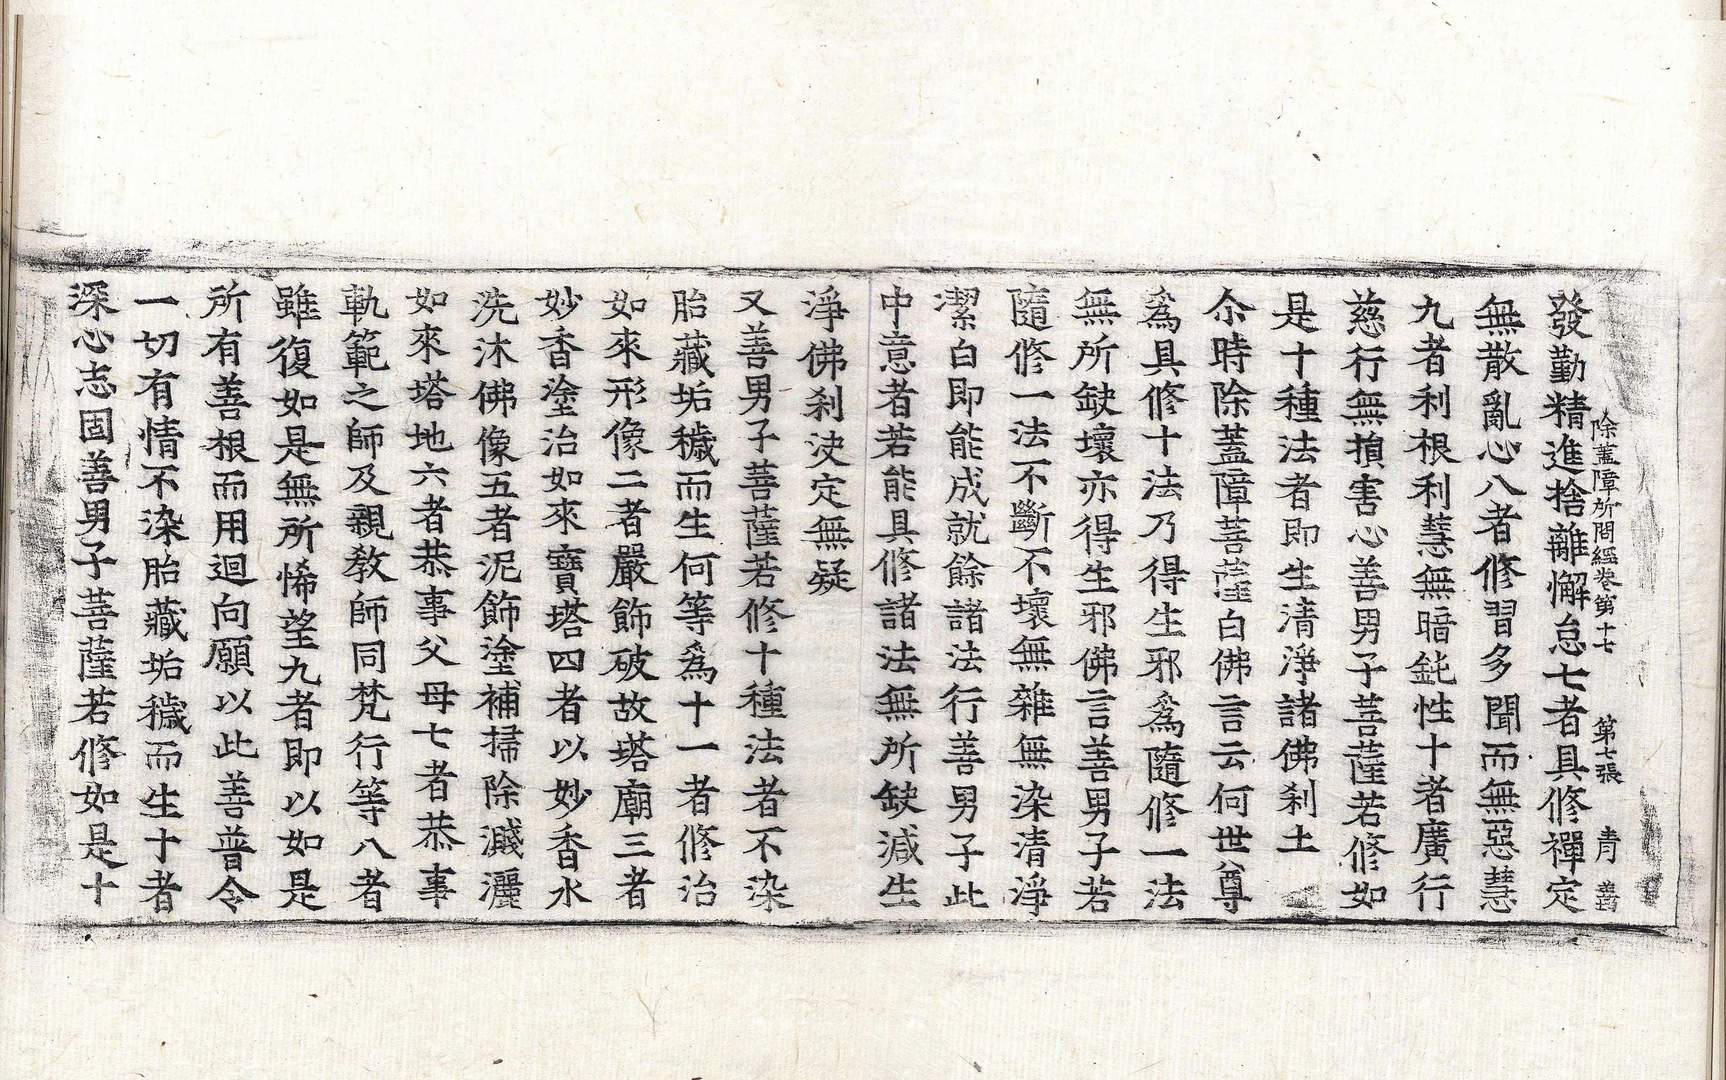 除蓋障所問經卷第十七　第七張　青
發勤精進捨離懈怠七者具修禪定
無散亂心八者修習多聞而無惡慧
九者利根利慧無暗鈍性十者廣行
慈行無損害心善男子菩薩若修如
是十種法者即生清淨諸佛刹土
尒時除蓋障菩薩白佛言云何世尊
爲具修十法乃得生邪爲隨修一法
無所缺壞亦得生邪佛言善男子若
隨修一法不斷不壞無雜無染清淨
潔白即能成就餘諸法行善男子此
中意者若能具修諸法無所缺減生
淨佛刹決定無疑
又善男子菩薩若修十種法者不染
胎藏垢穢而生何等爲十一者修治
如來形像二者嚴飾破故塔廟三者
妙香塗治如來寶塔四者以妙香水
洗沐佛像五者泥飾塗補掃除濺灑
如來塔地六者恭事父母七者恭事
軌範之師及親教師同梵行等八者
雖復如是無所悕望九者即以如是
所有善根而用迴向願以此善普令
一切有情不染胎藏垢穢而生十者
深心志固善男子菩薩若修如是十